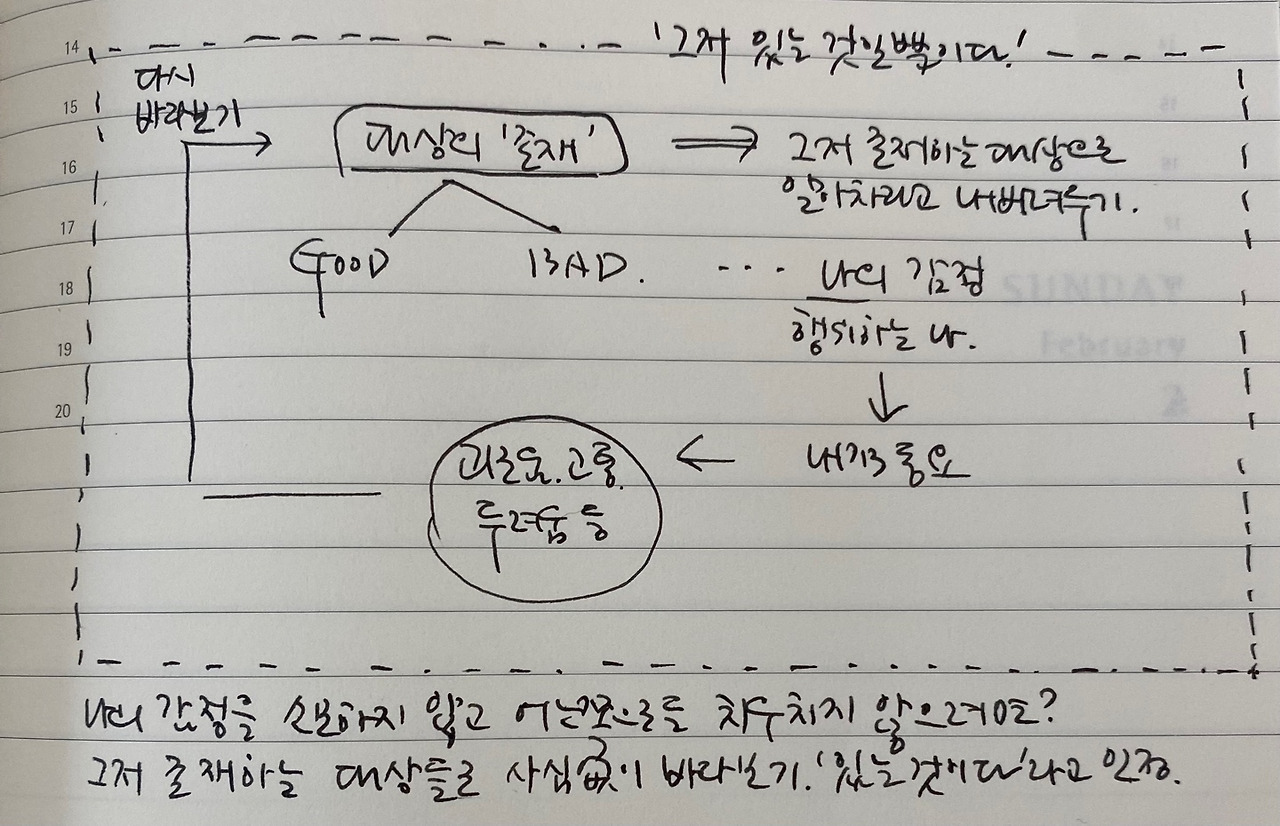 14
'그저 있는 것일뿐이다!'
다시
바라보기
15
대상의 '존재'
그저 존재하는 대상으로
16
알아차리고 내버려두기.
17
GOOD
BAD.
... 나의 감정
18
행위하는 나.
19
20
괴로움. 고통.
내가 중요
두려움 등
나의 감정을 소모하지 않고 어느쪽으로든 치우치지 않으려면?
그저 존재하는 대상들로 사심없이 바라보기. '있는 것이다'라고 인정.
SUNDAY
February
2